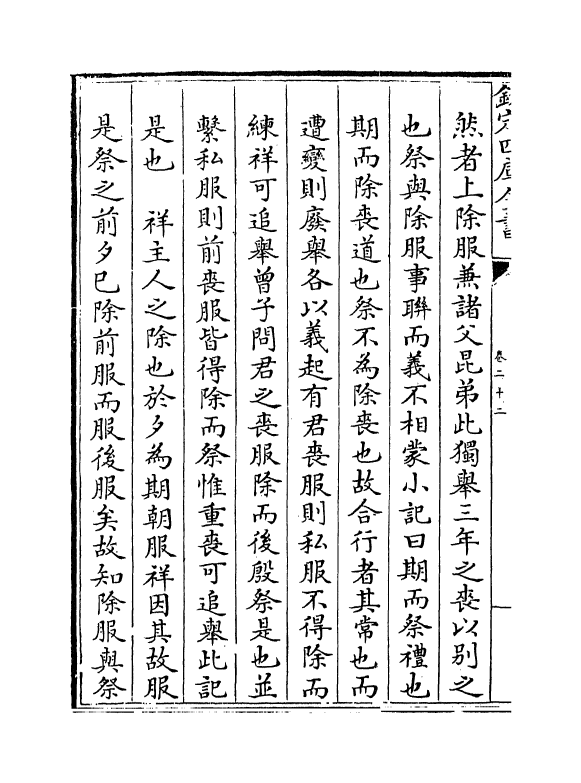 欽定四庫全書
卷二十二
然者上除服兼諸父昆弟此獨舉三年之喪以别之
也祭與除服事聯而義不相蒙小記曰期而祭禮也
期而除喪道也祭不為除喪也故合行者其常也而
遭變則廢舉各以義起有君喪服則私服不得除而
練祥可追舉曾子問君之喪服除而後殷祭是也並
繫私服則前喪服皆得除而祭惟重喪可追舉此記
是也　祥主人之除也於夕為期朝服祥因其故服
是祭之前夕已除前服而服後服矣故知除服與祭